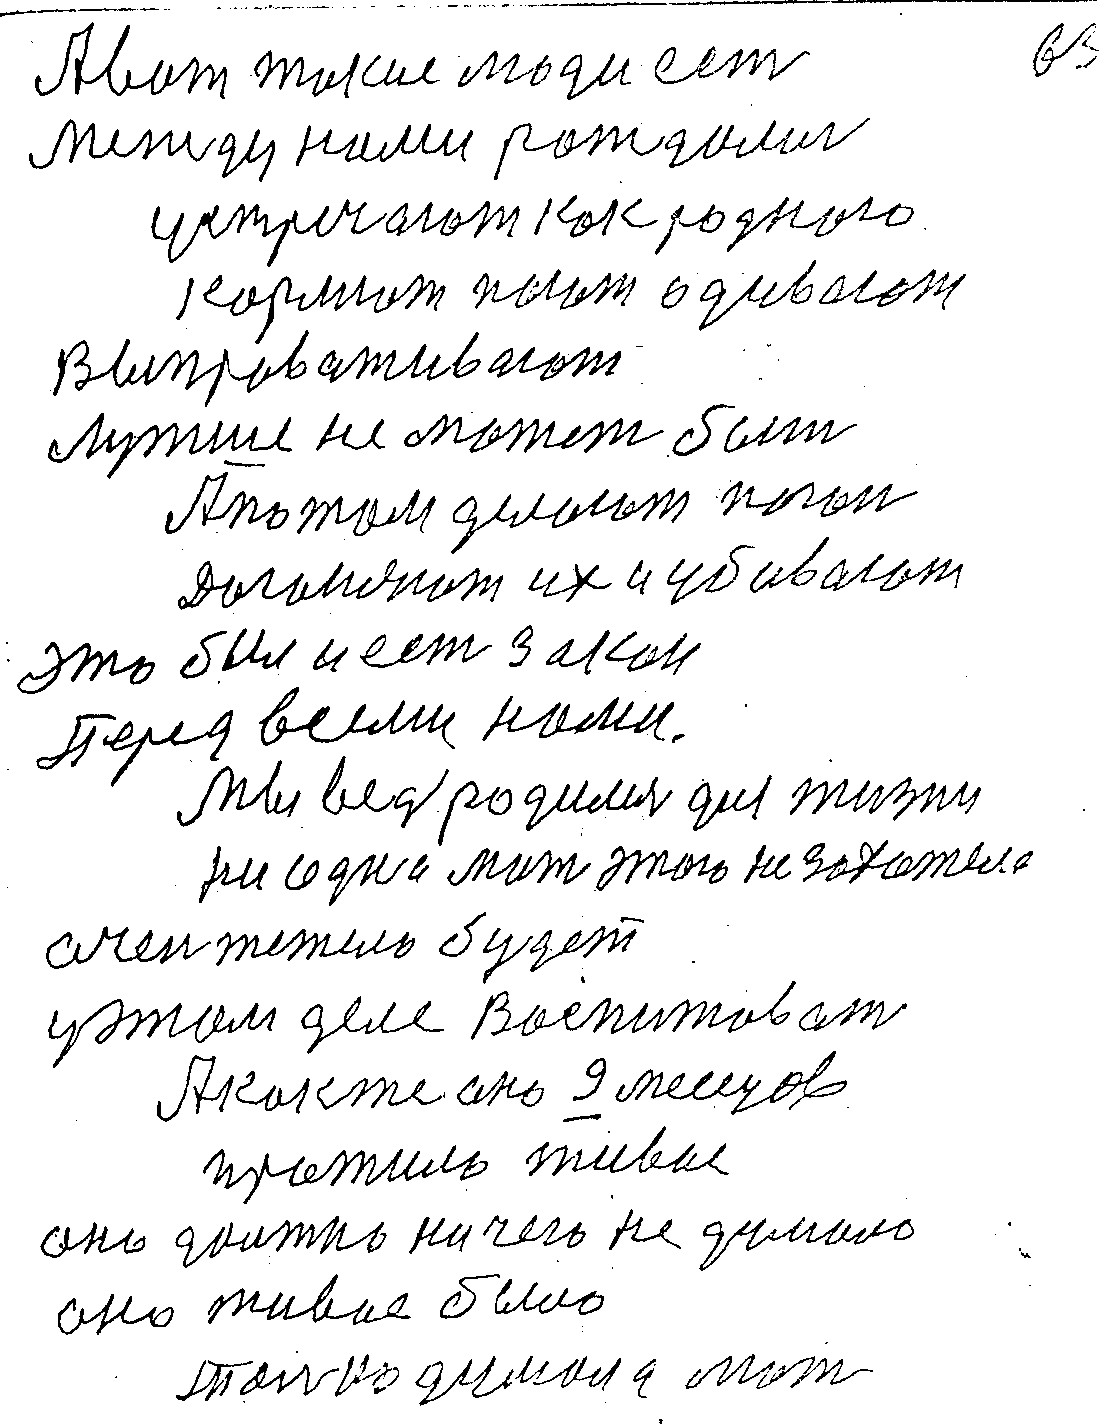 63
А вот такие люди ест
между нами рождались
устречают как родного
кормют поют одивают
Выпроваживают
лутше не может быт
А потом делают погон
догоняют их и убивают
это был и ест закон
Перед всеми нами.
Мы вед родилис для жизни
ни одна мат этого не захотела
очен тежело будет
у этом деле Воспитоват
А как же оно 9 месецов
прожило живое
оно должно ничего не думало
оно живое было
Только думала мат